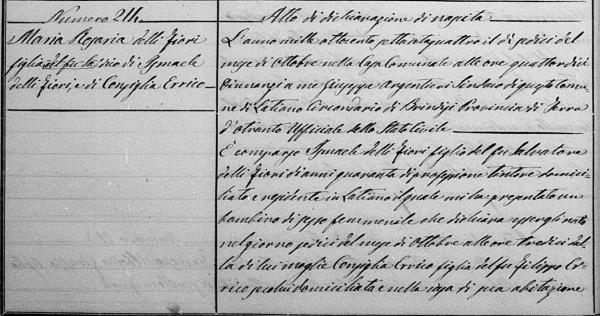 Numero 214.
Maria Rosaria delli Fiori
figlia di Ismaele
delli Fiori, e di Consiglia Errico
Atto di dichiarazione di nascita
L'anno mille ottocento settantaquattro il dì sedici del
mese di Ottobre nella Casa Comunale alle ore quattordici
Dinnanzi a me Giuseppe Argentieri Sindaco di questo Comu-
ne di Latiano Circondario di Brindisi Provincia di Terra
d'otranto Uffiziale dello Stato Civile
È comparso Ismaele delli Fiori figlio del fu Salvatore
delli Fiori di anni quaranta di professione tintore domici-
liato e residente in Latiano il quale mi ha presentato un
bambino di sesso femmenile che dichiara essergli nato
nel giorno sedici del mese di Ottobre alle ore tredici dal-
la di lui moglie Consiglia Errico figlia del fu Filippo Er-
rico seco lui domiciliata e nella casa di sua abitazione